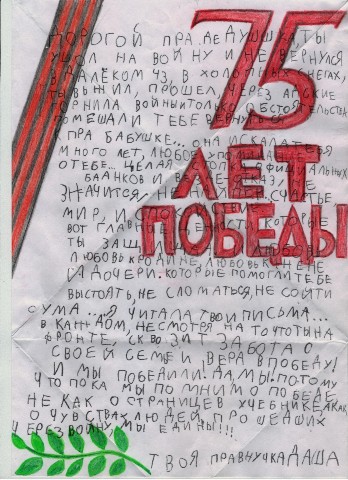 ДОРОГОЙ ПРА. ДЕДУШКА ТЫ
УШОЛ НА ВОЙНУ И НЕ ВЕРНУЛСЯ
В ДАЛЁКОМ 43, В ХОЛОДНЫХ СНЕГАХ,
ТЫ ВЫЖИЛ, ПРОШЕЛ, ЧЕРЕЗ АДСКИЕ
ГОРНИЛА ВОЙНЫ И ТОЛЬКО ОБСТОЯТЕЛЬСТВА
ПОМЕШАЛИ ТЕБЕ ВЕРНУТЬСЯ
К ПРА БАБУШКЕ... ОНА ИСКАЛА ТЕБЯ
МНОГО ЛЕТ, ЛЮБОЕ УПОМИНА
О ТЕБЕ... ЦЕЛАЯ ОФИЦИАЛЬНЫХ
БЛАНКОВ И ВЕЗДЕ ОТКАЗ, НЕ
ЗНАЧИТСЯ. СЧАСТЬЕ
МИР, И ПОКОЙ КОТОРЫЕ
ВОТ ГЛАВНЫЕ ЦЕННОСТИ
ТЫ ЗАЩИЩАЛ. ЛЮБОВЬ
ЛЮБОВЬ К РОДИНЕ, ЛЮБОВЬ К ЖЕНЕ
И ДОЧЕРИ. КОТОРЫЕ ПОМОГЛИ ТЕБЕ
ВЫСТОЯТЬ, НЕ СЛОМАТЬСЯ, НЕ СОЙТИ
СУМА... Я ЧИТАЛА ТВОИ ПИСЬМА...
В КАЖДОМ, НЕСМОТРЯ НА ТО ЧТО ТЫ НА
ФРОНТЕ, СКВОЗИТ ЗАБОТА О
СВОЕЙ СЕМЬЕ И ВЕРА В ПОБЕДУ!
И МЫ ПОБЕДИЛИ. ДА, МЫ. ПОТОМУ
ЧТО ПОКА МЫ ПОМНИМ О ПОБЕДЕ
НЕ КАК О СТРАНИЦЕ В УЧЕБНИКЕ А КАК
О ЧУВСТВАХ ЛЮДЕЙ ПРОШЕДШИХ
ЧЕРЕЗ ВОЙНУ, МЫ ЕДИНЫ!!!
ТВОЯ ПРАВНУЧКА ДАША
75
ЛЕТ
ПОБЕДЫ